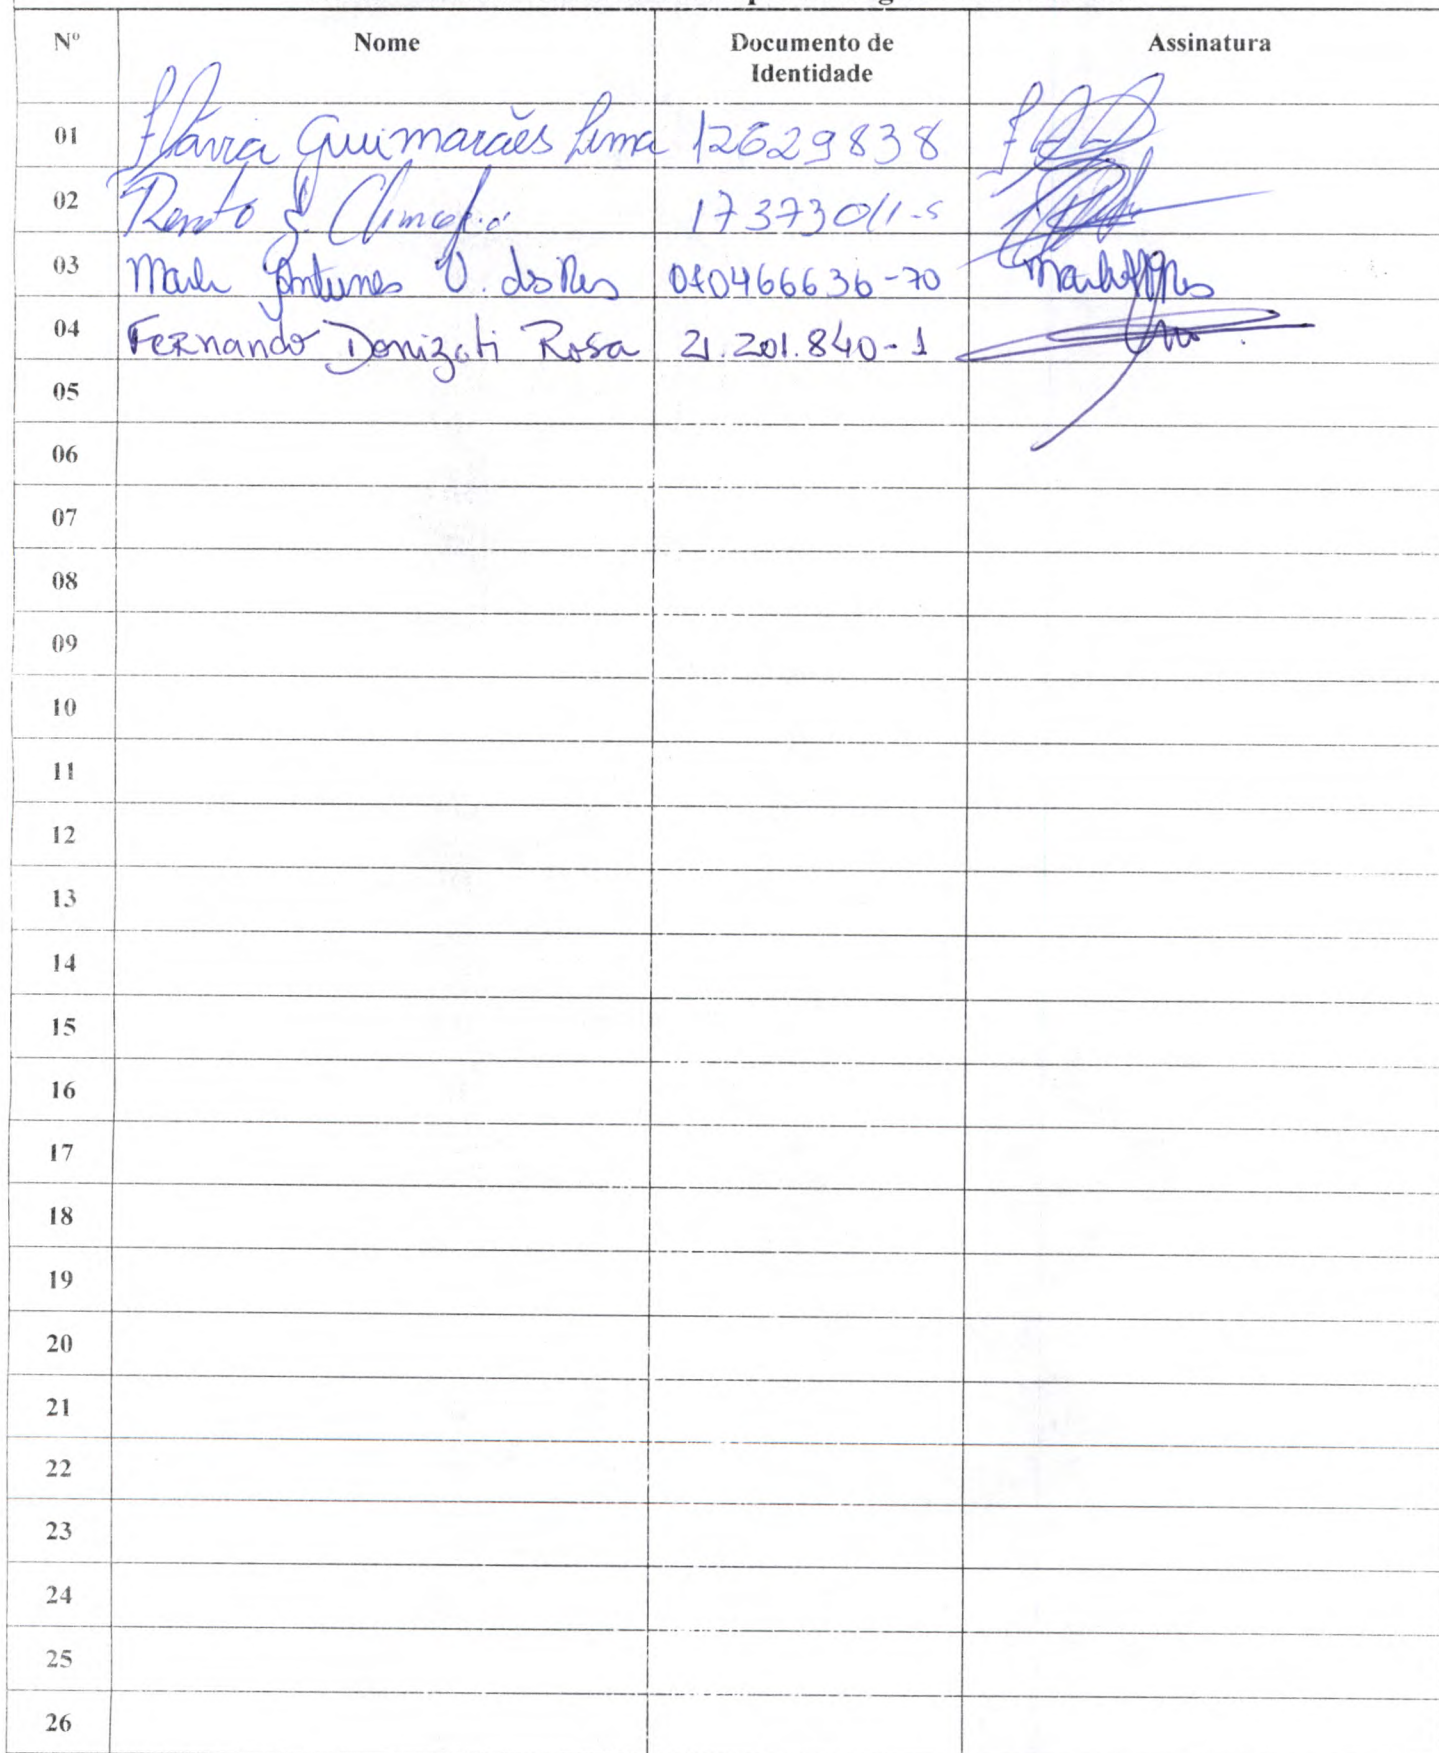 Nº Nome Documento de Identidade Assinatura
01 Flávia Guimarães Lima 12629838
02 Renato 17373011-5
03 Antunes V. dos Reis 040466636-70
04 Fernando Donizati Rosa 21.201.840-1
05
06
07
08
09
10
11
12
13
14
15
16
17
18
19
20
21
22
23
24
25
26